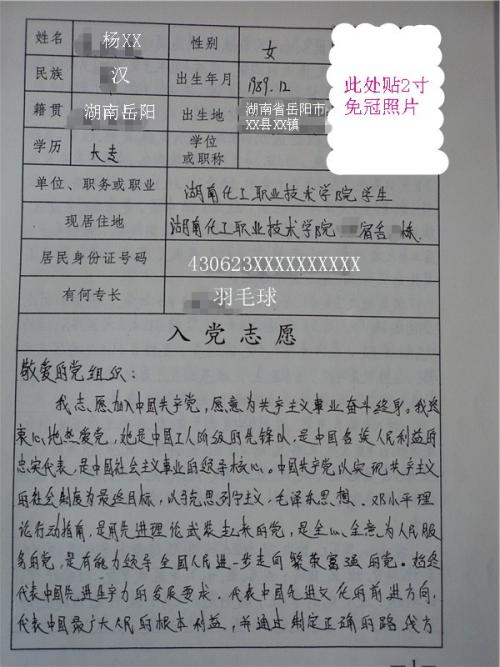 姓名 杨XX 性别 女
民族 汉 出生年月 1989.12
此处贴2寸
免冠照片
籍贯 湖南岳阳 出生地 湖南省岳阳市
XX县XX镇
学历 大专 学位
或职称
单位、职务或职业 湖南化工职业技术学院 学生
现居住地 湖南化工职业技术学院 宿舍 栋
居民身份证号码 430623XXXXXXXXXX
有何专长 羽毛球
入党志愿
敬爱的党组织：
我志愿加入中国共产党，愿意为共产主义事业奋斗终身。我
衷心地热爱党，她是中国工人阶级的先锋队，是中国各族人民利益的
忠实代表，是中国社会主义事业的领导核心。中国共产党以实现共产主义
的社会制度为最终目标，以马克思列宁主义、毛泽东思想、邓小平理
论行动指南，是用先进理论武装起来的党，是全心全意为人民服
务的党，是有能力领导全国人民进一步走向繁荣富强的党。始终
代表中国先进生产力的发展要求，代表中国先进文化的前进方向，
代表中国最广大人民的根本利益，并通过制定正确的路线方
1